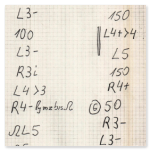 L3-
100
L3-
R3i
L4>3
R4-
ΩL5
150
L4+>4
L5
150
R4+
© 50
R3-
L3-